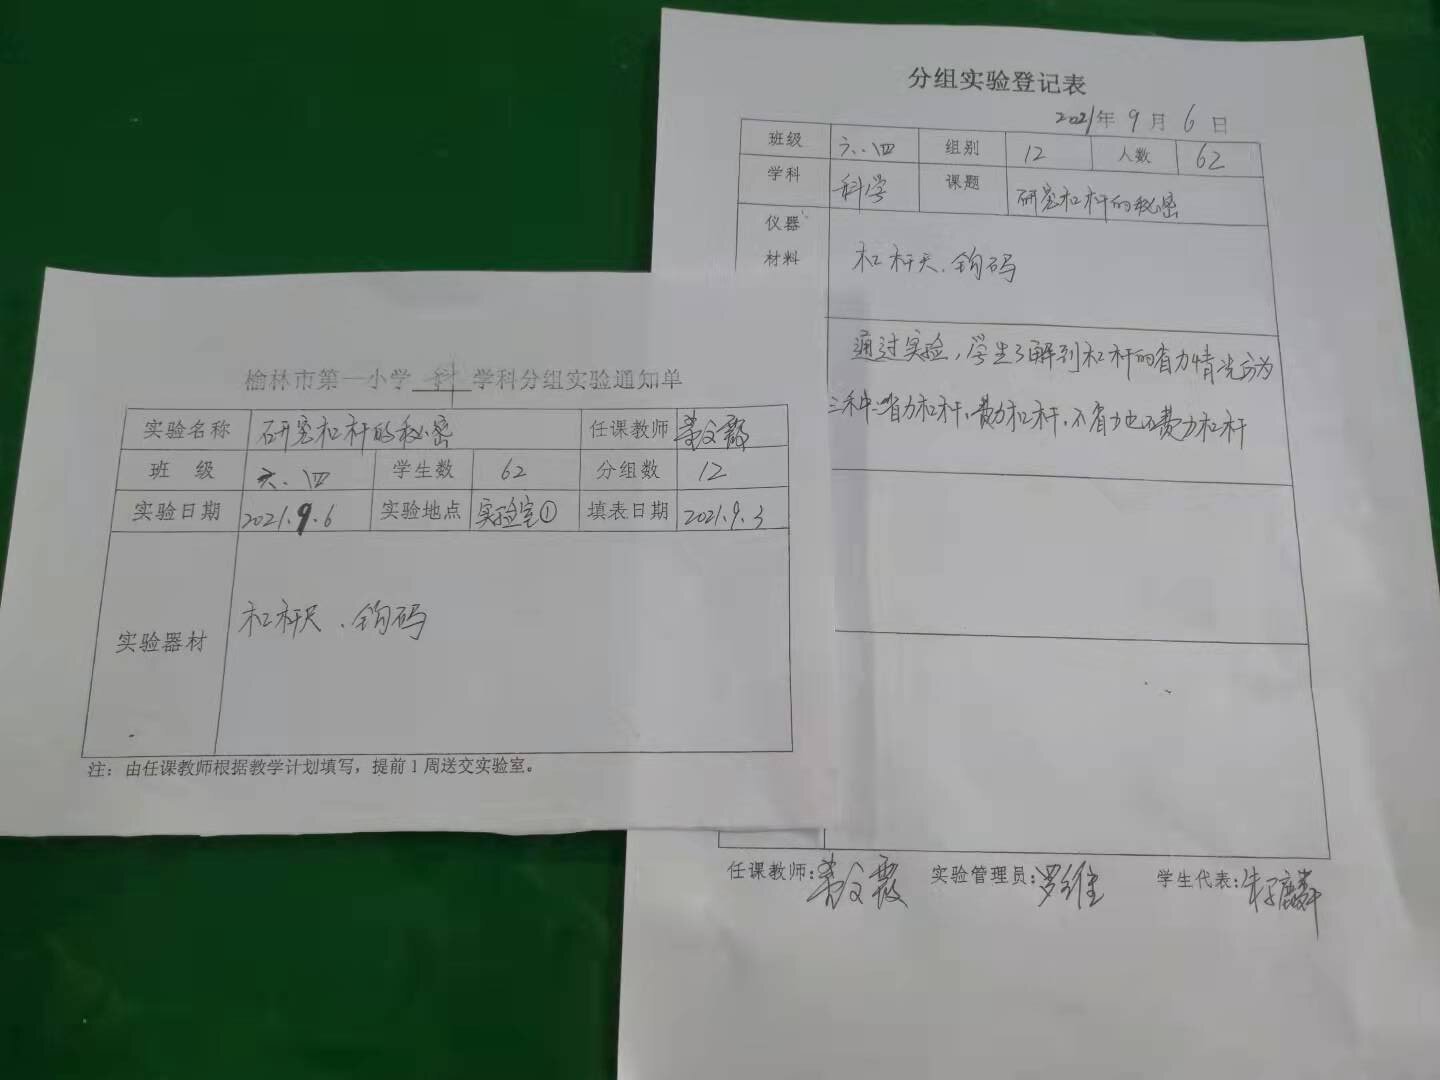 分组实验登记表
2021年 9 月 6 日
班级 六.四 组别 12 人数 62
学科 科学 课题 研究杠杆的秘密
仪器
材料 杠杆尺.钩码
通过实验,学生了解到杠杆的省力情况分为
三种:省力杠杆,费力杠杆,不省力也不费力杠杆
任课教师: 实验管理员:罗维 学生代表:
榆林市第一小学 科 学科分组实验通知单
实验名称 研究杠杆的秘密 任课教师
班 级 六.四 学生数 62 分组数 12
实验日期 2021.9.6 实验地点 实验室① 填表日期 2021.9.3
实验器材 杠杆尺.钩码
注:由任课教师根据教学计划填写,提前1周送交实验室。